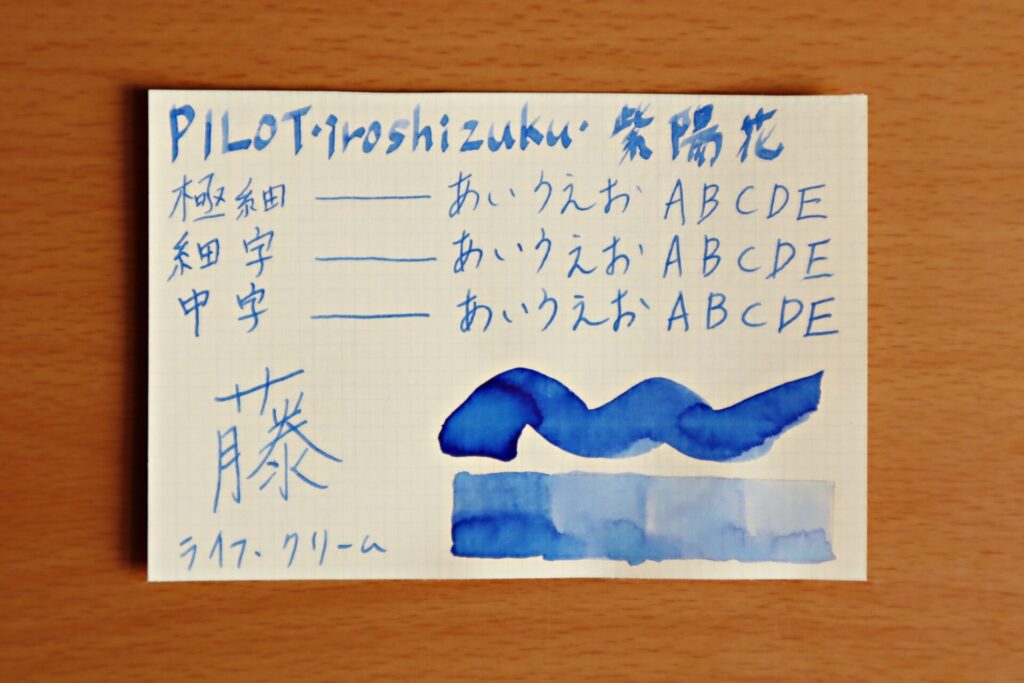 PILOT・iroshizuku・紫陽花
極細 あいうえお ABCDE
細字 あいうえお ABCDE
中字 あいうえお ABCDE
藤
ライフ、クリーム